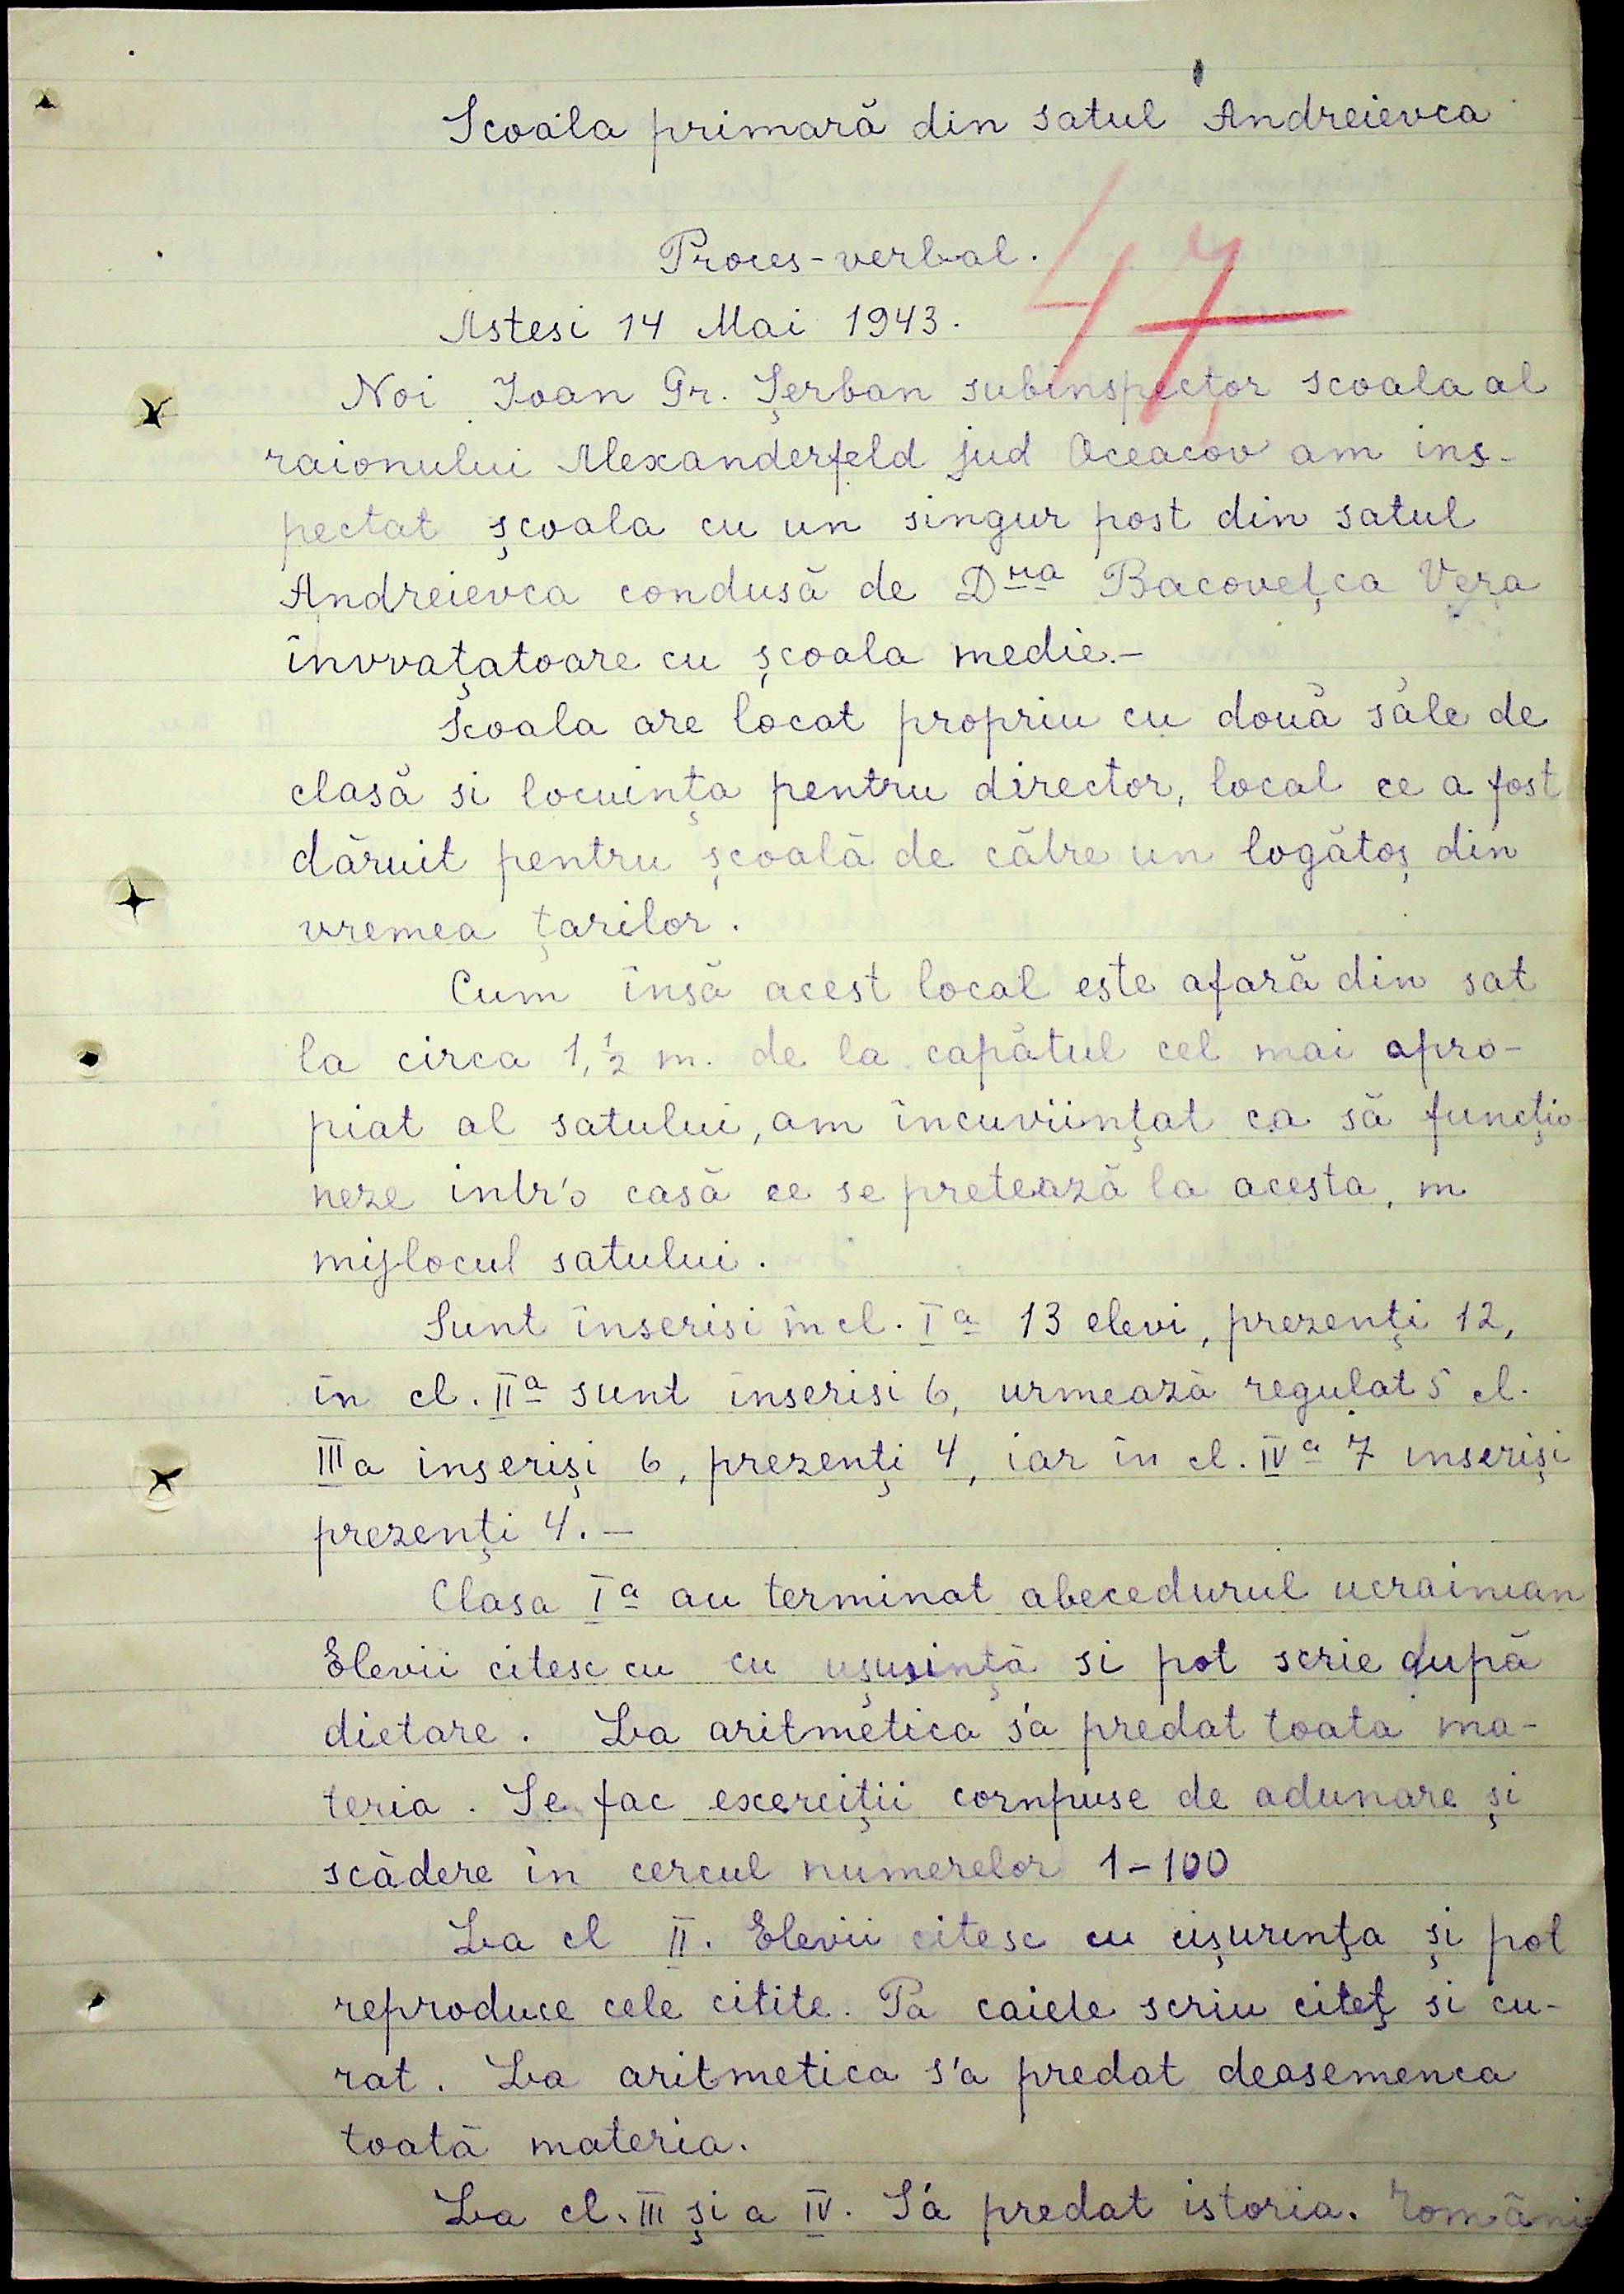 Scoala primară din satul Andreievca
47
Proces-verbal.
Astesi 14 Mai 1943.
Noi Ioan Gr. Șerban subinspector scoala al
raionului Alexanderfeld jud Oceacov am ins-
pectat școala cu un singur post din satul
Andreievca condusă de Dna Bacovețca Vera
învvațatoare cu școala medie.-
Școala are locat propriu cu două săle de
clasă si locuința pentru director, local ce a fost
dăruit pentru școală de către un logătoș din
vremea țarilor.
Cum însă acest local este afară din sat
la circa 1,½ m. de la capătul cel mai apro-
piat al satului, am încuviințat ca să funcțio
neze intr'o casă ce se pretează la acesta, in
mijlocul satului.
Sunt înscrisi in cl. Ia 13 elevi, prezenți 12,
in cl. IIa sunt inscrisi 6, urmează regulat 5 cl.
IIIa inscriși 6, prezenți 4, iar în cl. IVa 7 inscriși
prezenți 4. —
Clasa Ia au terminat abecedurul ucrainian
Elevii citesc cu cu ușusință si pot scrie după
dictare. La aritmetica s'a predat toata ma-
teria. Se fac exerciții compuse de adunare și
scădere în cercul numerelor 1-100
La cl II. Elevii citesc cu ușurința și pot
reproduce cele citite. Pa caiele scriu citeț si cu-
rat. La aritmetica s'a predat deasemenea
toată materia.
La cl. III și a IV. S'a predat istoria. Români